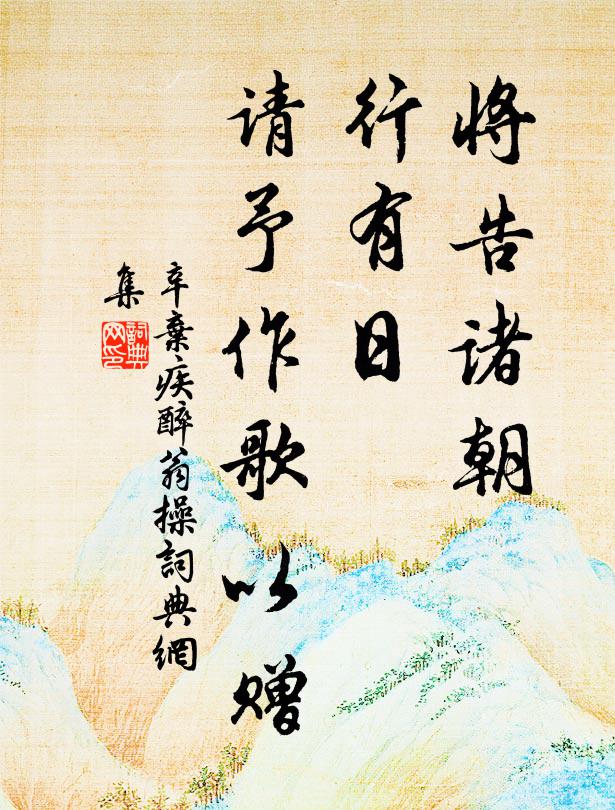 将告诸朝
行有日
请予作歌以赠
辛棄疾醉翁操詞典網
集
詞典网印